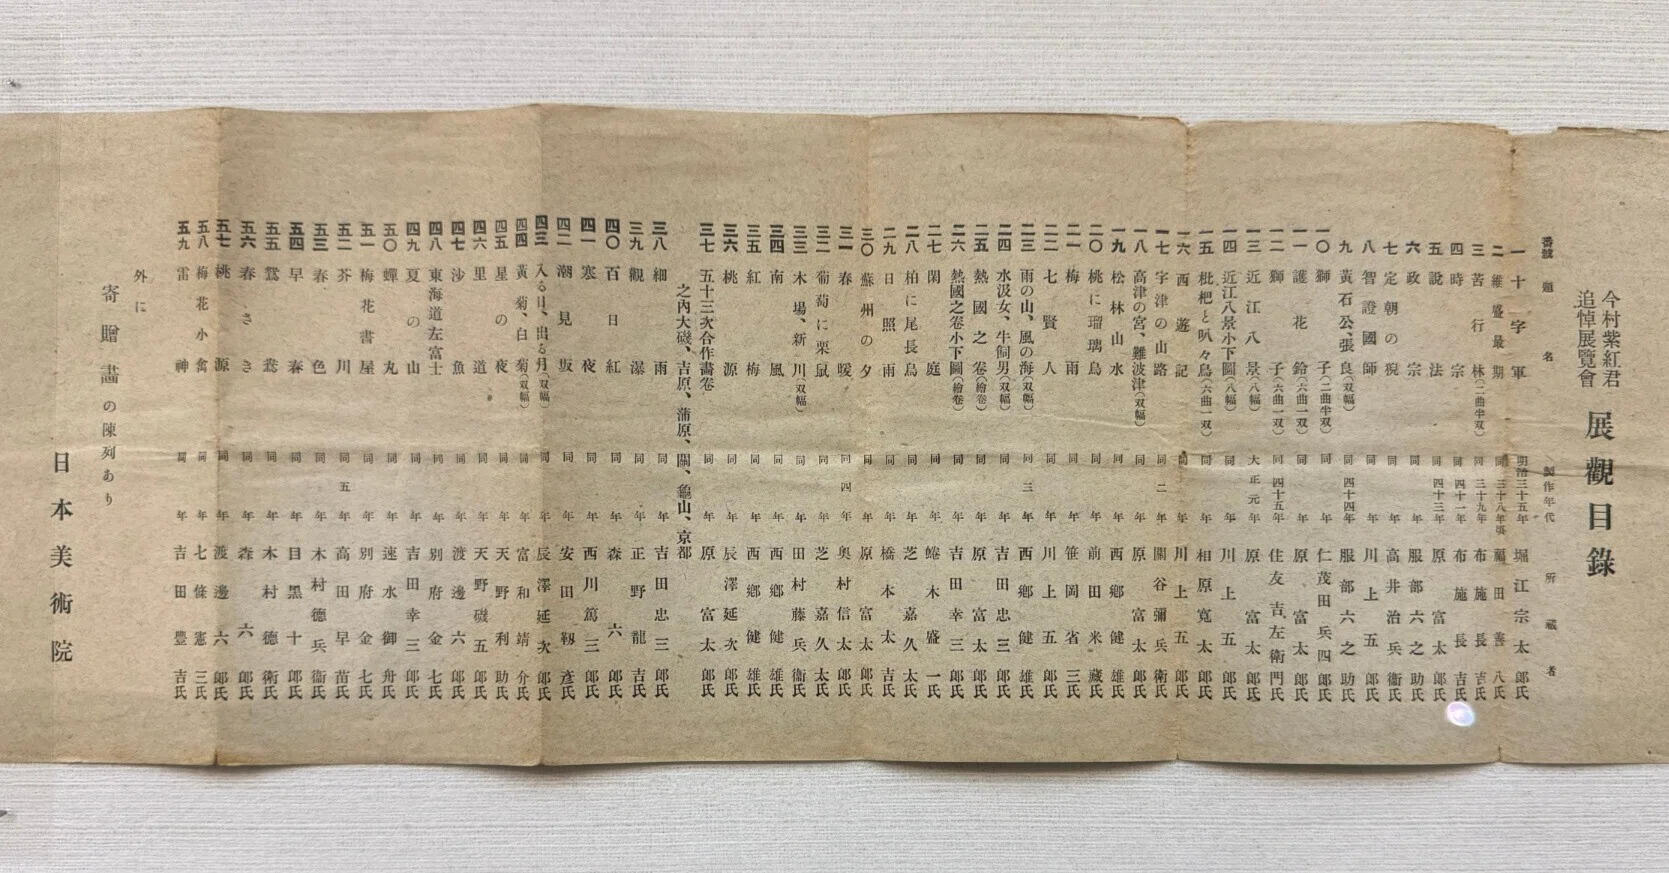 今村紫紅君
追悼展覽會
展觀目錄
番號 題名 製作年代 所藏者
一 十字軍 明治三十五年 堀江宗太郎氏
二 維盛最期 同 三十八年頃 福田善八氏
三 苦行林(二曲半双) 同 三十九年 布施長吉氏
四 時宗 同 四十一年 布施長吉氏
五 說法 同 四十三年 原富太郎氏
六 政宗 同年 服部六之助氏
七 定朝の猊 同年 高井治兵衞氏
八 智證國師 同年 川上五郎氏
九 黃石公、張良(双幅) 同 四十四年 服部六之助氏
一〇 獅子(二曲半双) 同年 仁茂田兵四郎氏
一一 護花鈴(六曲一双) 同年 原富太郎氏
一二 獅子(六曲一双) 同 四十五年 住友吉左衛門氏
一三 近江八景(八幅) 大正元年 原富太郎氏
一四 近江八景小下圖(八幅) 同年 川上五郎氏
一五 枇杷と叺々鳥(六曲一双) 同年 相原寬太郎氏
一六 西遊記 同年 川上五郎氏
一七 宇津の山路 同 二年 關谷彌兵衞氏
一八 高津の宮、難波津(双幅) 同年 原富太郎氏
一九 松林山水 同年 西鄕健雄氏
二〇 桃に瑠璃鳥 同年 前田米藏氏
二一 梅雨 同年 笹岡省三氏
二二 七賢人 同年 川上五郎氏
二三 雨の山、風の海(双幅) 同 三年 西鄕健雄氏
二四 水汲女、牛飼男(双幅) 同年 吉田忠三郎氏
二五 熱國之卷(繪卷) 同年 原富太郎氏
二六 熱國之卷小下圖(繪卷) 同年 吉田幸三郎氏
二七 閑庭 同年 蜷木盛一氏
二八 柏に尾長鳥 同年 芝嘉久太氏
二九 日照雨 同年 橋本太吉氏
三〇 蘇州の夕 同年 原富太郎氏
三一 春暖 同 四年 奧村信太郎氏
三二 葡萄に栗鼠 同年 芝嘉久太氏
三三 木場、新川(双幅) 同年 田村藤兵衞氏
三四 南風 同年 西鄕健雄氏
三五 紅梅 同年 西鄕健雄氏
三六 桃源 同年 辰澤延次郎氏
三七 五十三次合作畵卷 同年 原富太郎氏
之內大磯、吉原、蒲原、關、龜山、京都
三八 細雨 同年 吉田忠三郎氏
三九 觀瀑 同年 正野龍吉氏
四〇 百日紅 同年 森六郎氏
四一 寒夜 同年 西川篤三郎氏
四二 潮見坂 同年 安田靱彥氏
四三 入る日、出る月(双幅) 同年 辰澤延次郎氏
四四 黃菊、白菊(双幅) 同年 富和靖介氏
四五 星の夜 同年 天野利助氏
四六 里道 同年 天野磯五郎氏
四七 沙魚 同年 渡邊六郎氏
四八 東海道左富士 同年 別府金七氏
四九 夏の山 同年 吉田幸三郎氏
五〇 蟬丸 同年 速水御舟氏
五一 梅花書屋 同年 別府金七氏
五二 芥川 同 五年 高田早苗氏
五三 春色 同年 木村德兵衞氏
五四 早春 同年 目黑十郎氏
五五 鴛鴦 同年 木村德衞氏
五六 春さき 同年 森六郎氏
五七 桃源 同年 渡邊六郎氏
五八 梅花小禽 同年 七條憲三氏
五九 雷神 同年 吉田豐吉氏
外に
寄贈畵の陳列あり
日本美術院